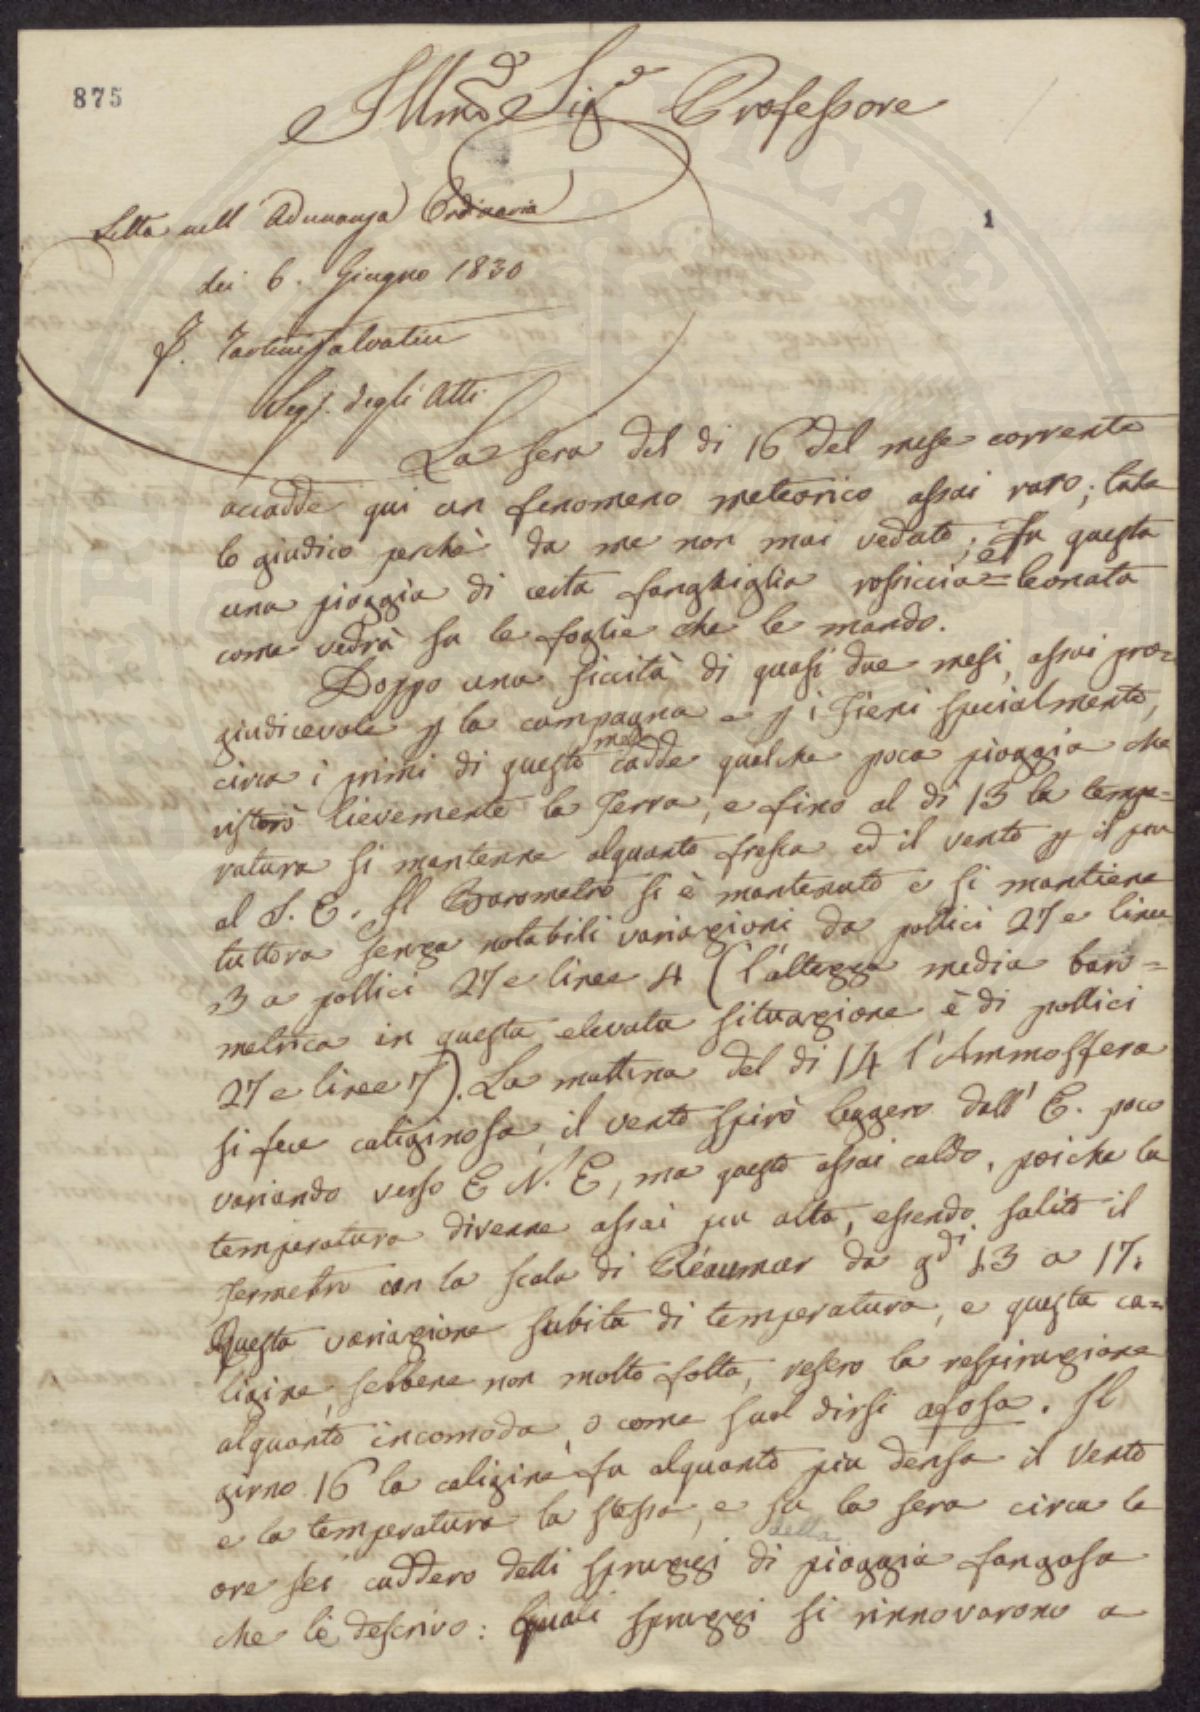 875
Illmo. Sigr. Professore
1
Letta nell' Adunanza Ordinaria
dei 6. Giugno 1830
F. Tartini Salvatici
Segr. degli Atti
La sera del dì 16 del mese corrente
accadde qui un fenomeno meteorico assai raro; tale
lo giudico perchè da me non mai veduto; fu questa
una pioggia di certa fanghiglia rossiccia e = leonata
come vedrà su le foglie che le mando.
Doppo una siccità di quasi due mesi, assai pre=
giudicevole p la campagna e p i Fieni specialmente,
circa i primi di questo mese cadde qualche poca pioggia che
ristorò lievemente la Terra, e fino al dì 13 la tempe=
ratura si mantenne alquanto fresca ed il vento p il piu
al S. E. Il Barometro si è mantenuto e si mantiene
tuttora senza notabili variazioni da pollici 27 e linee
3 a pollici 27 e linee 4 (l'altezza media baro=
metrica in questa elevata situazione è di pollici
27 e linee 7). La mattina del dì 14 l'Ammosfera
si fece caliginosa, il vento spirò leggero dall' E. poco
variando verso E N. E, ma questo assai caldo, poiche la
temperatura divenne assai piu alta, essendo salito il
Termetro con la scala di Réaumur da gdi 13 a 17.
Questa variazione subita di temperatura, e questa ca=
ligine, sebbene non molto folta, resero la respirazione
alquanto incomoda, o come suol dirsi afosa. Il
girno 16 la caligine fu alquanto piu densa il Vento
e la temperatura la stessa, e su la sera circa le
ore sei caddero delli spruzzi di della pioggia fangosa
che le descrivo: quali spruzzi si rinnovarono a